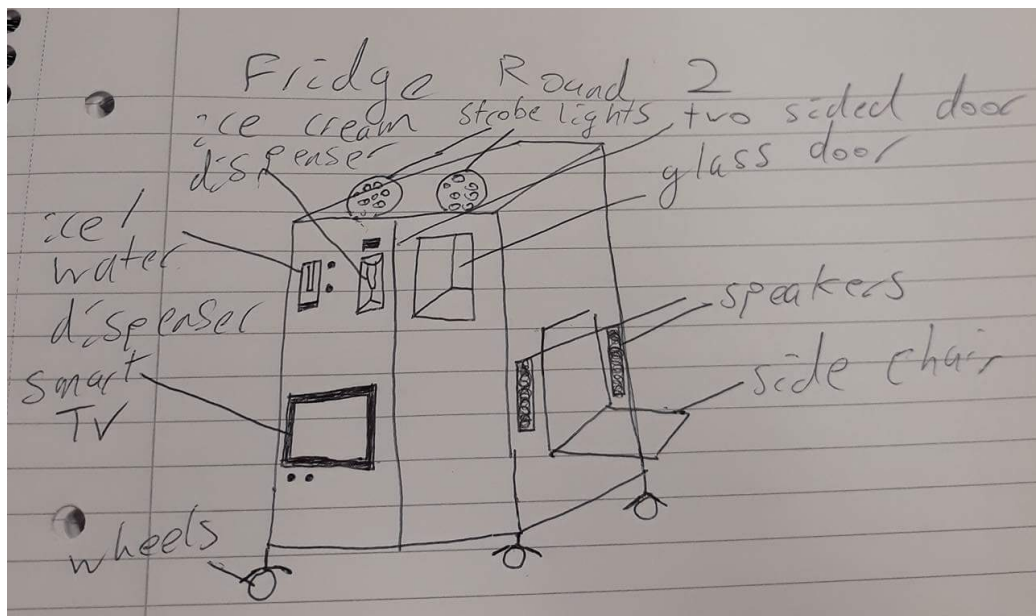 Fridge Round 2
ice cream
dispenser
strobe lights
two sided door
glass door
ice/
water
dispenser
speakers
side chair
smart
TV
wheels